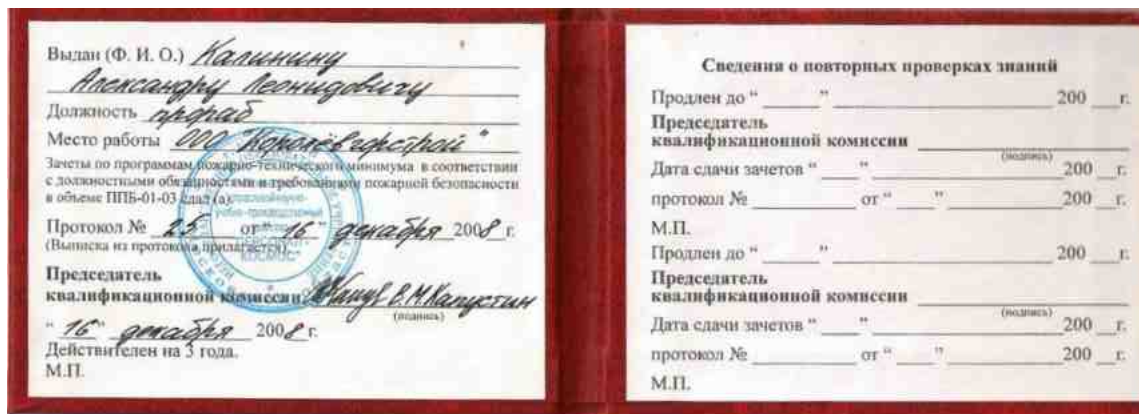 Выдан (Ф. И. О.) Калинину
Александру Леонидовичу
Должность прораб
Место работы ООО "Королёвгорстрой"
Зачеты по программам пожарно-технического минимума в соответствии
с должностными обязанностями и требованиями пожарной безопасности
в объеме ППБ-01-03 сдал (а).
Протокол № 25 от "16" декабря 2008 г.
(Выписка из протокола прилагается).
КОСМОС"
Председатель
квалификационной комиссии В.М.Капустин
(подпись)
"16" декабря 2008 г.
Действителен на 3 года.
М.П.
Сведения о повторных проверках знаний
Продлен до "____" ____ 200 __ г.
Председатель
квалификационной комиссии ____
(подпись)
Дата сдачи зачетов "____" ____ 200 __ г.
протокол № ____ от "____" ____ 200 __ г.
М.П.
Продлен до "____" ____ 200 __ г.
Председатель
квалификационной комиссии ____
(подпись)
Дата сдачи зачетов "____" ____ 200 __ г.
протокол № ____ от "____" ____ 200 __ г.
М.П.